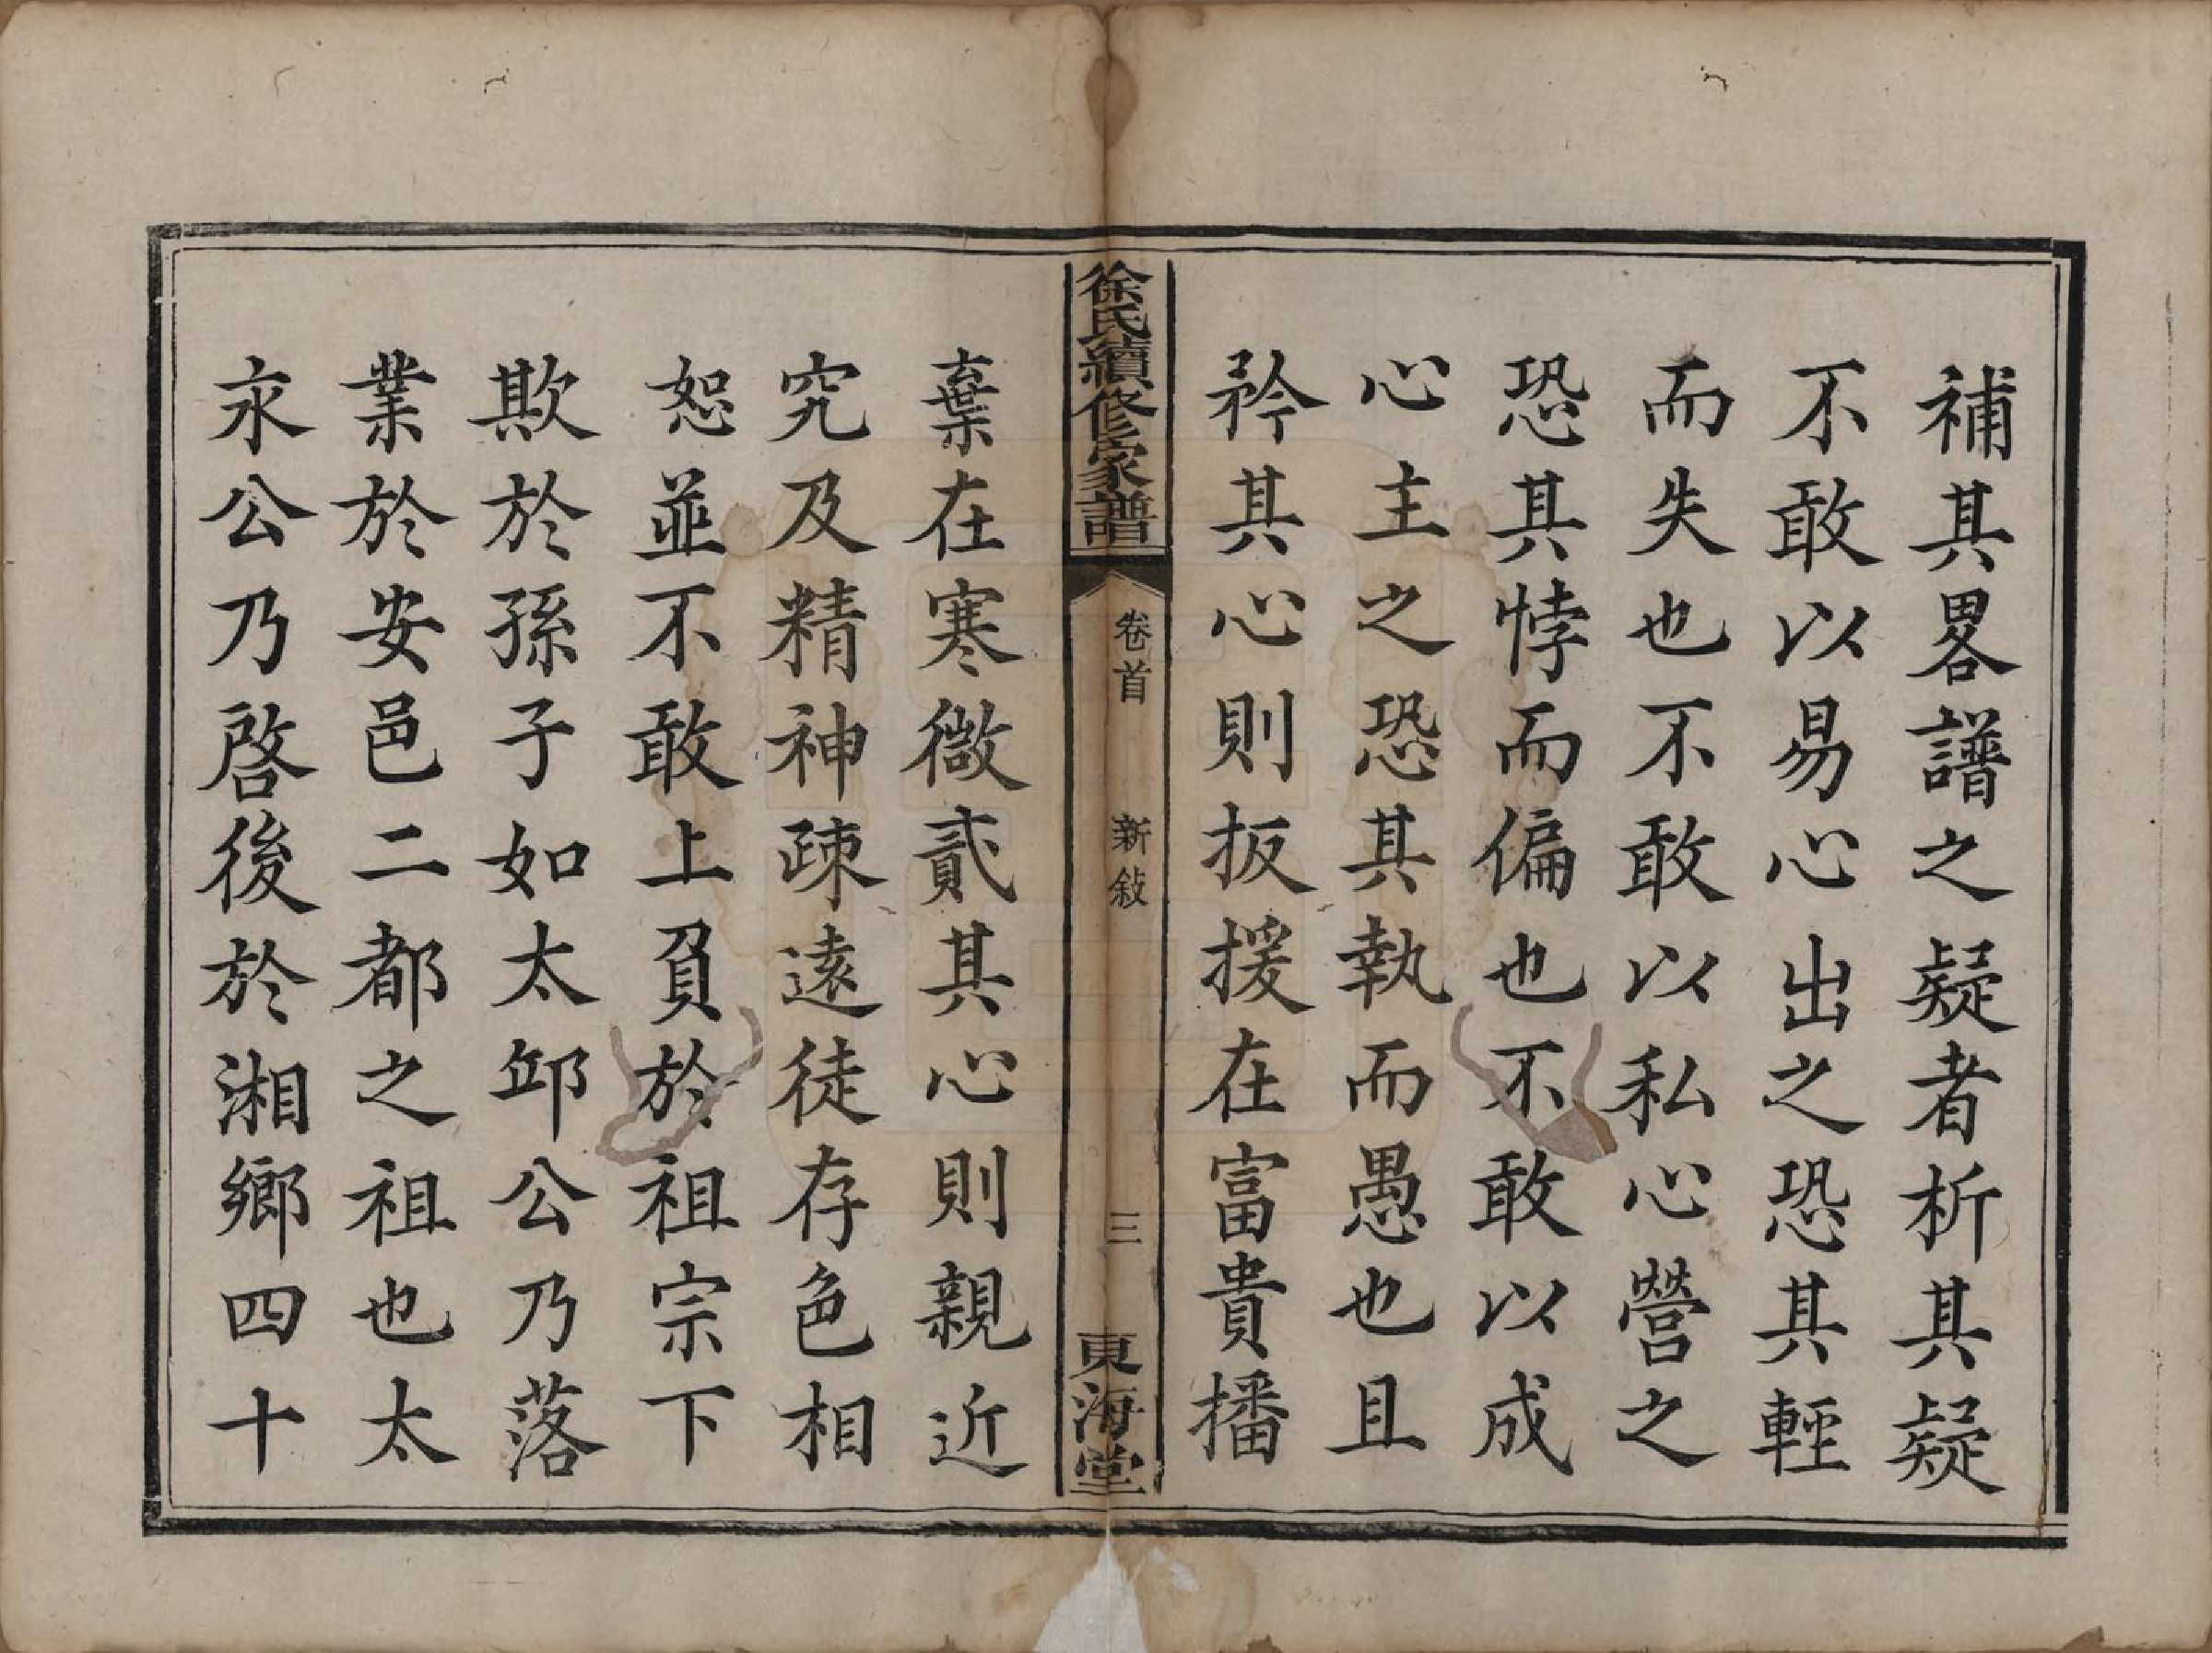 補其畧譜之疑者析其疑
不敢以易心出之恐其輕
而失也不敢以私心營之
恐其悖而偏也不敢以成
心主之恐其執而愚也且
矜其心則扳援在富貴播
徐氏續修家譜
卷首
新敍
三
東海堂
棄在寒微貳其心則親近
究及精神疎遠徒存色相
恕並不敢上負於祖宗下
欺於孫子如太邱公乃落
業於安邑二都之祖也太
永公乃啓後於湘鄉四十